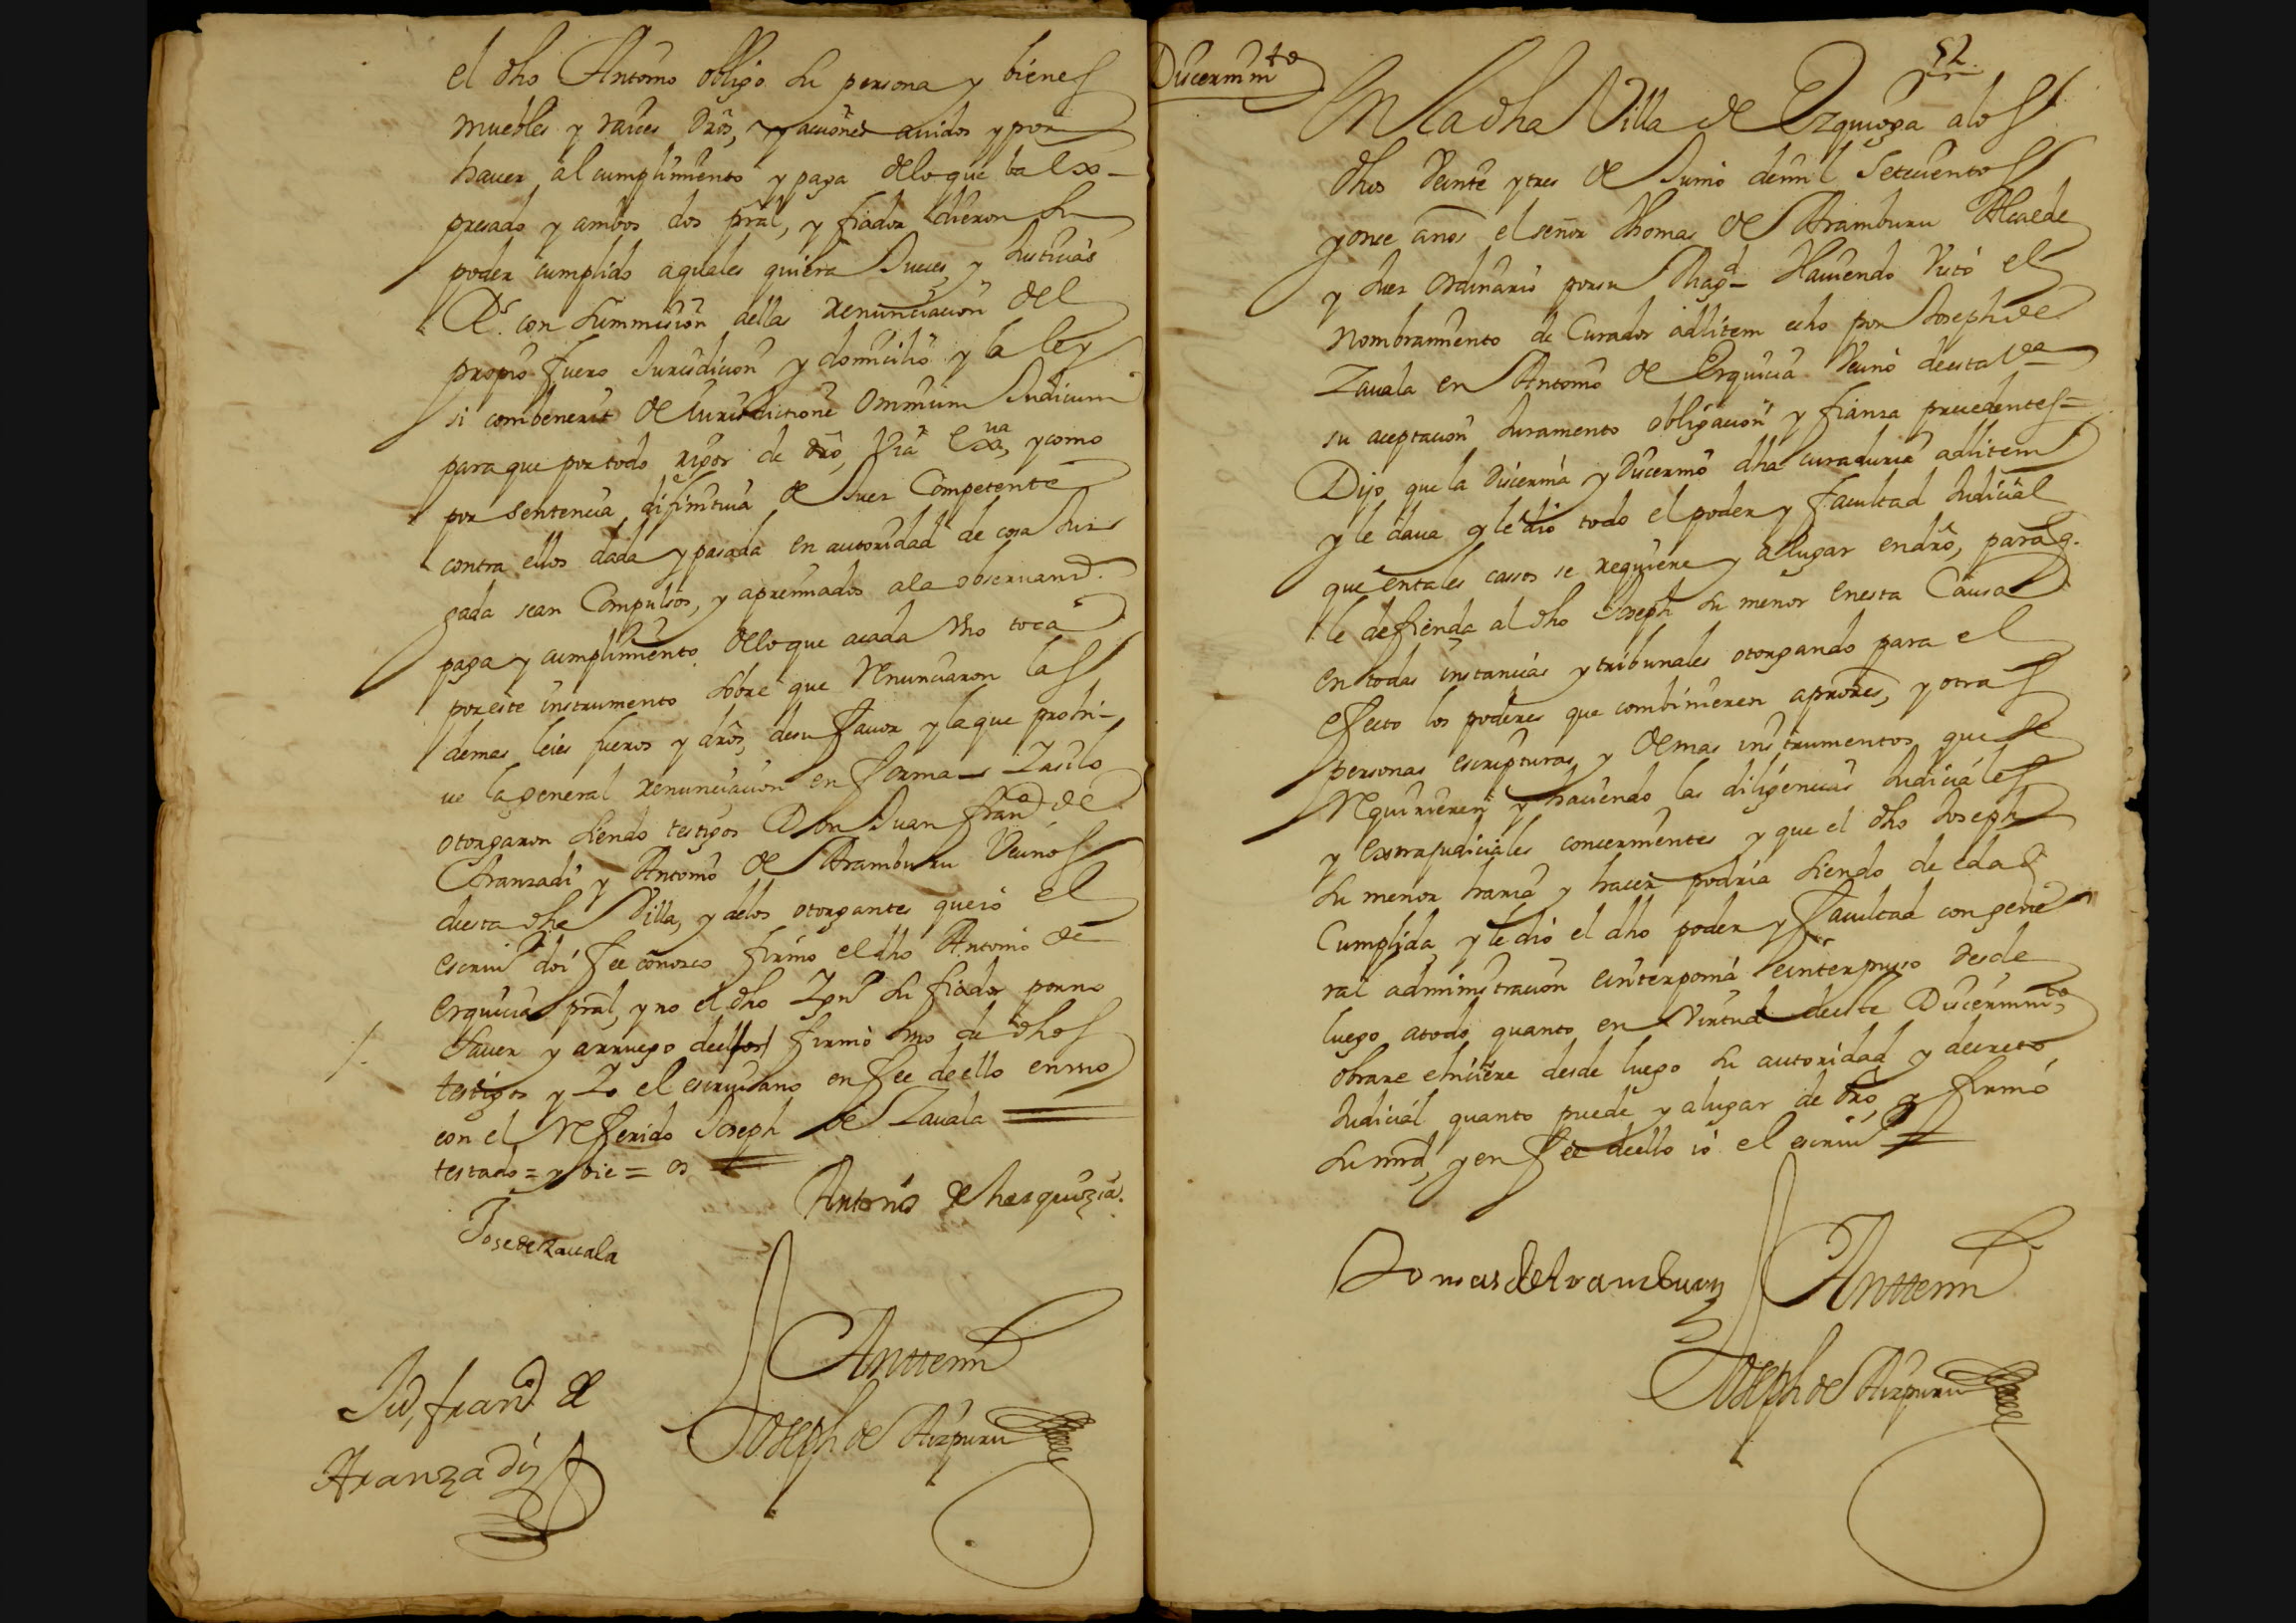 el dho Antonio obligo su persona y bienes
muebles y raices dros, y acciones auidos y por
hauer al cumplimiento y paga delo que ba ex-
presado y ambos dos pral, y fiador dieron su
poder cumplido aquales quiera Jueces y Justicias
Rs. con summision aellas renunciacion del
propio fuero Jurisdicion y domicilio y la ley
si combenerit de Jurisdictione omnium Judicum
para que por todo rigor de dro, via exua, y como
por sentencia difinitiua de Juez Competente
contra ellos dada y pasada en autoridad de cosa Juz
gada sean Compulsos, y apremiados ala obseruand.
paga y cumplimiento delo que acada vno toca
por este instrumento sobre que renunciaron las
demas leies fueros y dros, desu fauor y la que prohi-
ue la general renunciacion en forma y Zasilo
otorgaron siendo testigos Don Juan Franco de
Aranzadi y Antonio de Aramburu Vecinos
desta dha Villa, y delos otorgantes que io el
escriuo doi fee conozco firmo el dho Antonio de
Erquicia pral, y no el dho su fiador por no
sauer y arruego deellos firmo vno de dhos
testigos y Zo el escriuano en fee de ello enmo
con el referido Joseph de Zauala
testado = y bie = os
Antonio de herquizia.
Jose de zauala
Anttemi
Ju, franco de
Aranzadi
Joseph de Aizpuru
52
Discernimto
En la dha Villa de Ezquioga alos
dhos Veinte y tres de Junio de mil Setecientos
y onze años el señor Thomas de Aramburu Alcalde
y Juez ordinario por su Magd Hauiendo visto el
nombramiento de Curador adlitem echo por Joseph de
Zauala en Antonio de Erquicia Vecino de esta va
su aceptacion Juramento obligacion y fianza precedentes =
Dijo que la discernia y discernio dha curaduria adlitem
y le daua y le dio todo el poder y facultad Judicial
que en tales cassos se requiere y a lugar en dro, para q.
le defienda al dho Joseph su menor en esta Causa
en todas instancias y tribunales otorgando para el
efecto los poderes que combinieren aprores, y otras
personas escripturas, y demas instrumentos que se
requirieren y haciendo las diligencias Judiciales
y extrajudiciales concernientes y que el dho Joseph
su menor haria y hacer podria siendo de edad
Cumplida y le dio el dho poder y facultad con gene
ral administracion e interponia e interpuso desde
luego atodo quanto en virtud de este Discernimto,
obrare e hiciere desde luego su autoridad y decreto
Judicial quanto puede y a lugar de dro, y firmó
su mrd, y en fee deello io el escriuo
Tomas de Aramburu
Anttemi
Joseph de Aizpuru